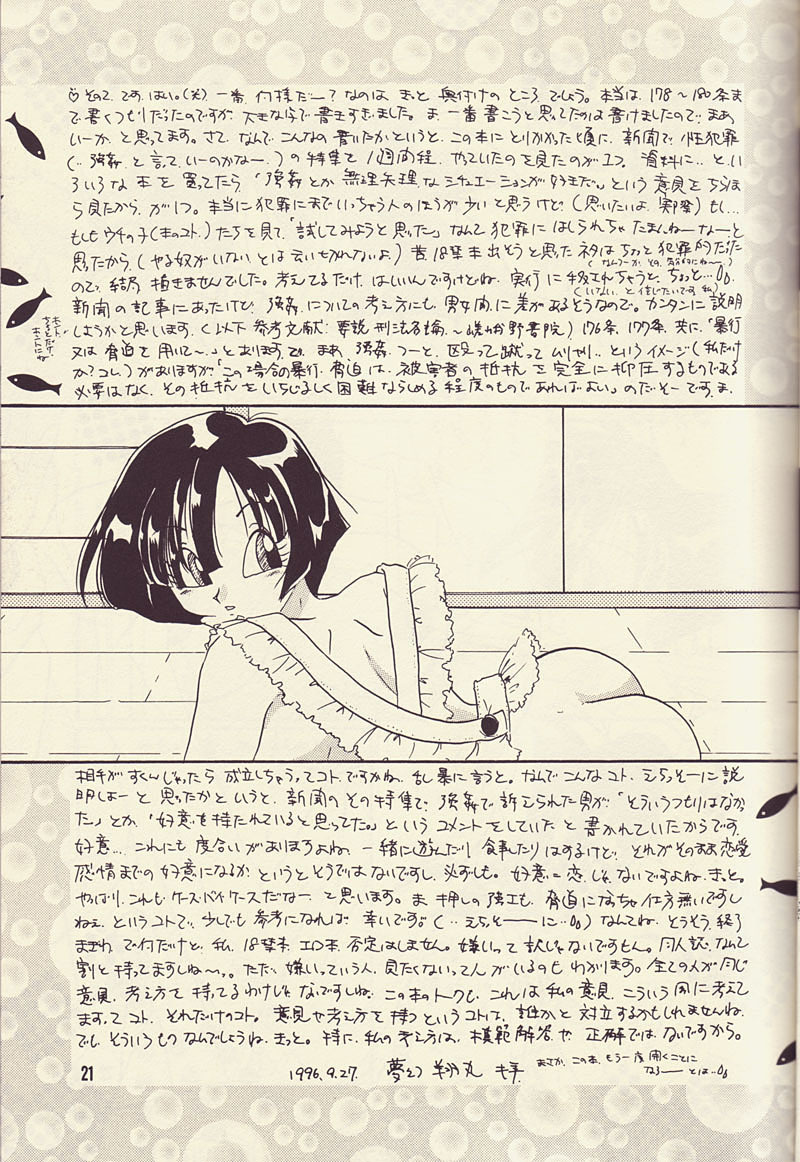 ♡その2. です. はい。(笑) 一番. 何様だー? なのは きっと 奥付けの ところ でしょう。本当は. 178〜180条ま
で 書くつもりだったのですが. 大きな字で 書きすぎました。ま. 一番 書こうと 思ってたのは 書けましたので. まあ
いーか. と思ってます。さて. なんで こんなの 書いたか というと. この本に とりかかった頃に. 新聞で. 性犯罪
(‥強姦 と言って. いーのかなー.) の 特集を 1週間程. やっていたのを 見たのが 1つ. 資料に‥と. い
ろいろな 本を 買ってたら「強姦とか 無理矢理な シチュエーションが 好きだ。」という 意見を ちらほ
ら見たから. が1つ。本当に 犯罪にまで いっちゃう人の ほうが 少いと 思うけど (思いたいよ. 実際) もし…
もしも ウチの子(本のコト.)たちを見て.「試してみようと思った」なんて 犯罪に はしられちゃ たまんねーなーと
思ったから. (やる奴がいない とは 云いきれないよ.) 昔. 18禁本出そうと思った ネタは ちょっと 犯罪的だった
ので. 結局. 描きませんでした。考えてるだけ. はいいんですけどね. 実行に 移されちゃうと. ちょっと…
(いない. と信じたいです. 私.)
新聞の 記事にあったけど. 強姦. についての 考え方にも. 男女間に 差が あるそうなので。カンタンに 説明
しようかと 思います. (以下 参考文献: 要説 刑法各論 〜嵯峨野書院) 176条. 177条. 共に.「暴行
又は 脅迫を 用いて〜.」と あります. が. まあ. 強姦. つーと. 殴って 蹴って ムリヤリ.. という イメージ (私だけ
か? コレ.) がありますが「この場合の暴行. 脅迫は. 被害者の 抵抗を 完全に 抑圧するものである
必要はなく. その抵抗を いちじるしく 困難ならしめる 程度のもので あればよい」 のだそーです. ま.
相手が すくんじゃったら 成立しちゃうってコト. ですかね. 乱暴に言うと。なんで こんなコト. えらっそーに 説
明しよー と 思ったか というと. 新聞の その特集で. 強姦で 訴えられた男が.「そういうつもりはなか
った」とか.「好意を 持たれていると 思ってた。」という コメントを していた と 書かれていたからです.
好意… これにも 度合いが ありますよね. 一緒に 遊んだり 食事したり はするけど. それが そのまま 恋愛
感情までの 好意になるか. というと そうではないですし. 必ずしも。好意=恋. じゃないですよね. きっと。
やっぱり. これも ケースバイケースだなー. と 思います。ま 押しの強さも. 脅迫に なっちゃ 仕方無いですし
ねぇ. というコトで. 少しでも 参考になれば 幸いです。(‥えらっそーーに‥) なんてね. そうそう. 終り
まぎわ で何だけど. 私. 18禁本. エロ本. 否定 はしません。嫌いって 訳じゃないですもん。同人誌. なんて
割と 持ってますしね〜。 ただ. 嫌いっていう人. 見たくないって人 がいるのも わかります。全ての人が 同じ
意見. 考え方を 持ってるわけじゃ ないですしね. この本のトークも. これは 私の意見. こういう風に 考えて
ますってコト. それだけのコト。意見や 考え方を 持つ というコトは. 誰かと 対立するかもしれませんね.
でも そういうもの なんでしょうね. きっと。特に. 私の考え方は. 模範解答や 正解では. ないですから。
まさか. この本. もう一度 開くことに
なろーー とは‥
21
1996.9.27.